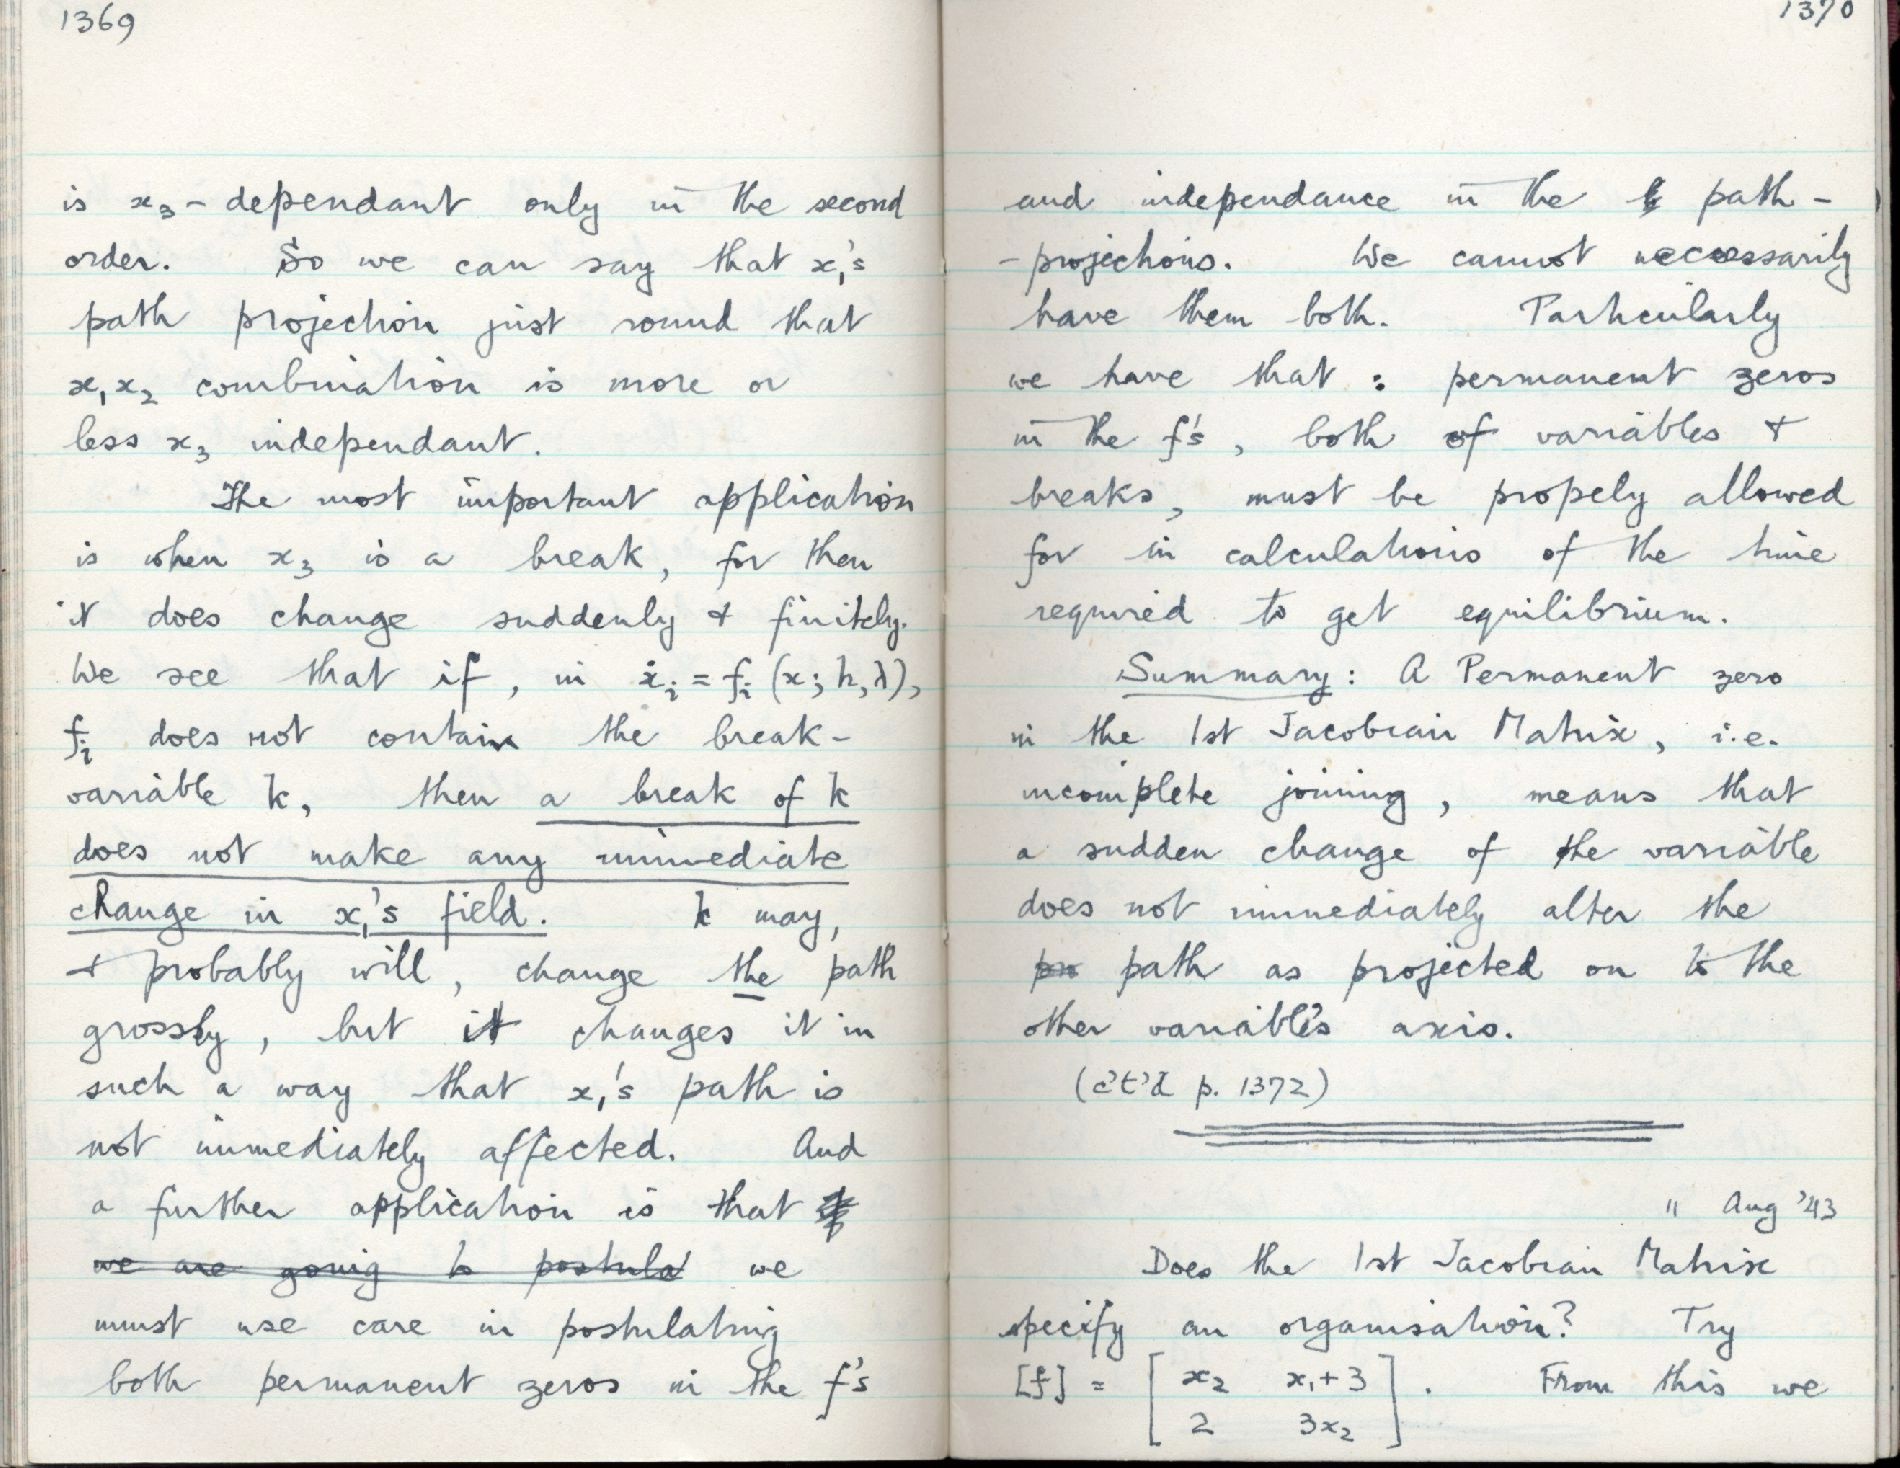 1369
is x₃-dependant only in the second
order. So we can say that x₁'s
path projection just round that
x₁x₂ combination is more or
less x₃ independant.
The most important application
is when x₃ is a break, for then
it does change suddenly & finitely.
We see that if, in ẋᵢ = fᵢ (x; h, λ),
fᵢ does not contain the break-
variable k, then a break of k
does not make any immediate
change in x₁'s field. k may,
& probably will, change the path
grossly, but it changes it in
such a way that x₁'s path is
not immediately affected. And
a further application is that
we are going to postula we
must use care in postulating
both permanent zeros in the f's
1370
and independance in the path-
-projections. We cannot necessarily
have them both. Particularly
we have that: permanent zeros
in the f's, both of variables &
breaks, must be propely allowed
for in calculations of the time
required to get equilibrium.
Summary: A Permanent zero
in the 1st Jacobian Matrix, i.e.
incomplete joining, means that
a sudden change of the variable
does not immediately alter the
pro path as projected on to the
other variable's axis.
(c't'd p. 1372)
" Aug '43
Does the 1st Jacobian Matrix
specify an organisation? Try
[f] = [ x₂ x₁+3 ] . From this we
2 3x₂